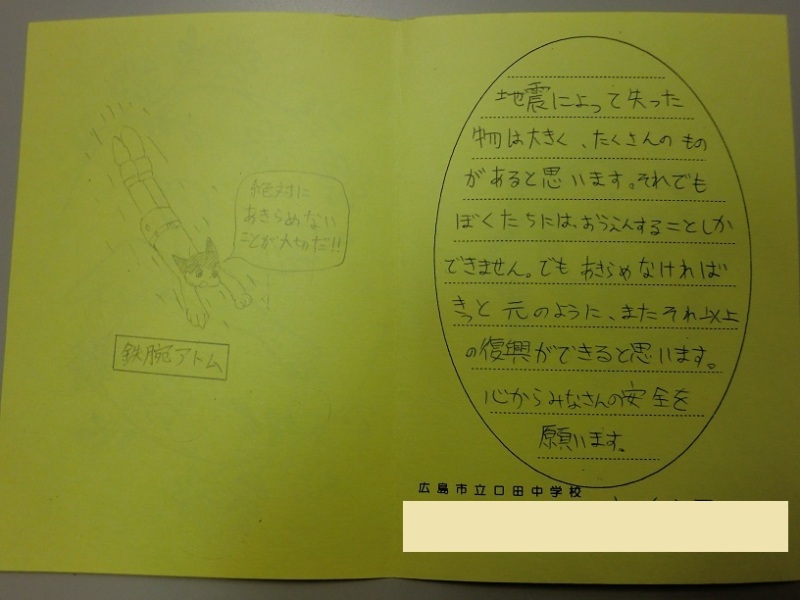 絶対に
あきらめない
ことが大切だ!!
鉄腕アトム
地震によって失った
物は大きく、たくさんのもの
があると思います。それでも
ぼくたちには、おうえんすることしか
できません。でもあきらめなければ
きっと元のように、またそれ以上
の復興ができると思います。
心からみなさんの安全を
願います。
広島市立口田中学校